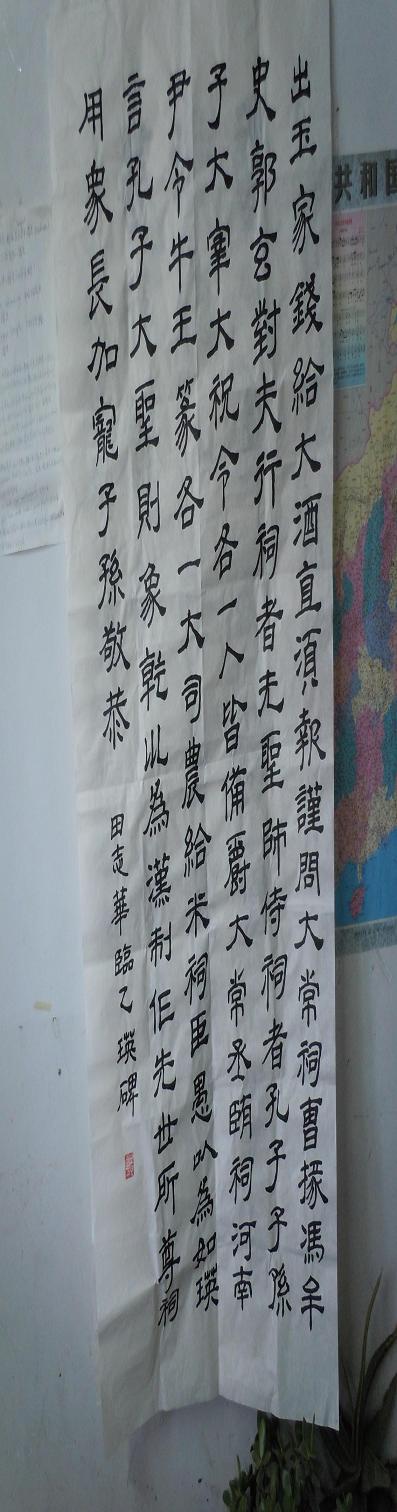 出王家錢給大酒直須報謹問大常祠曹掾馮牟
史郭玄對夫行祠者先聖師侍祠者孔子子孫
子大宰大祝令各一人皆備爵大常丞監祠河南
尹令牛王篆各一大司農給米祠臣愚以為如瑛
言孔子大聖則象乾川為漢制作先世所尊祠
用衆長加寵子孫敬恭
田志華臨乙瑛碑
共和国